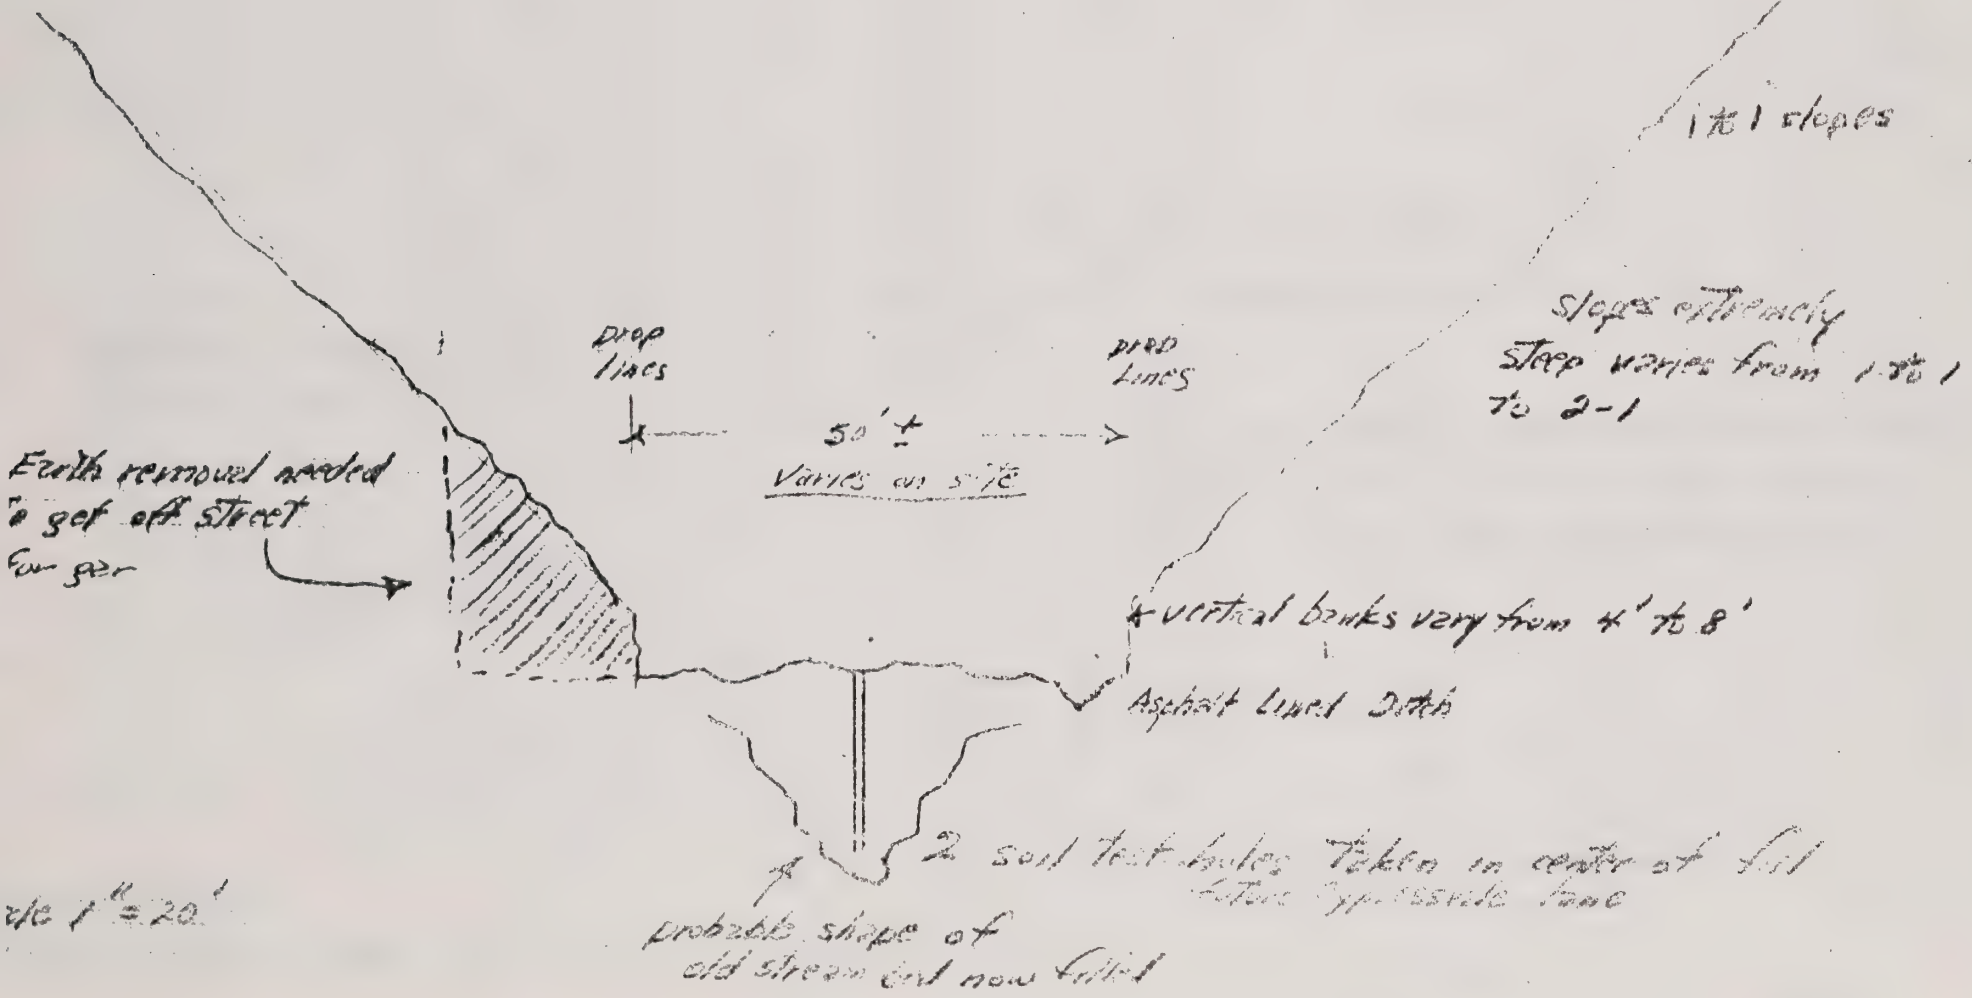 1 to 1 slopes
slopes extremely
steep varies from 1 to 1
to 2-1
prop
lines
prop
Lines
50' ±
varies on site
Earth removal needed
to get off street
for gar
vertical banks vary from 4' to 8'
Asphalt Lined Ditch
2 soil test holes taken in center of fill
future lane
1" = 20'
probable shape of
old stream bed now filled